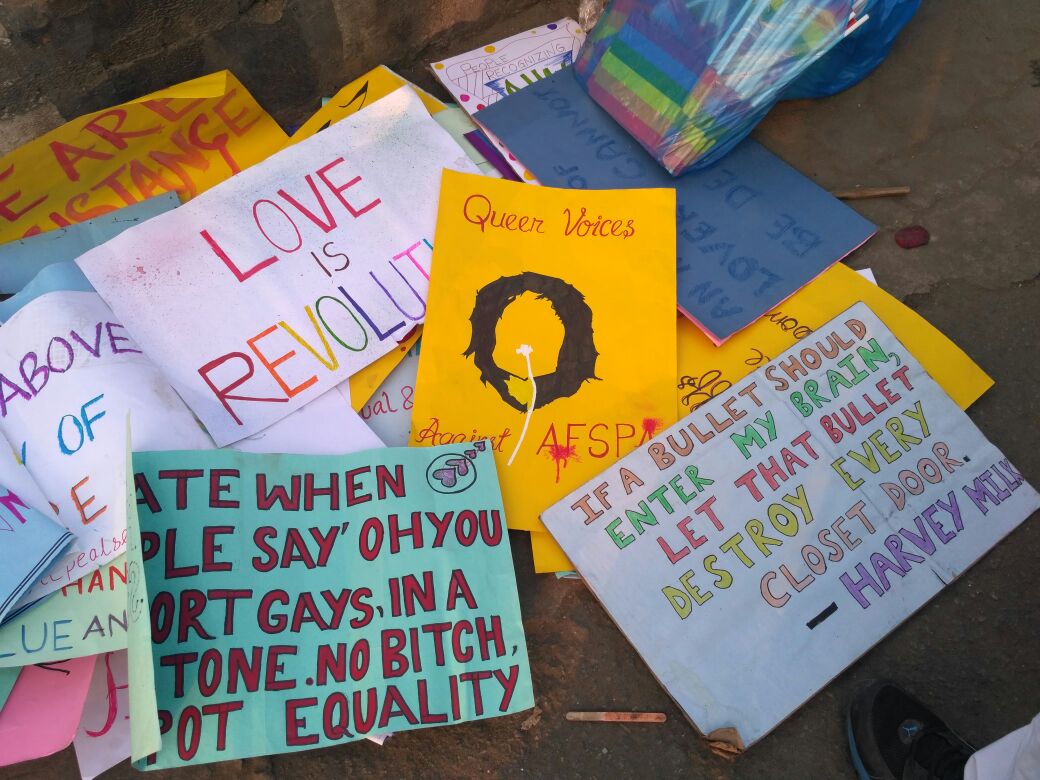 PEOPLE
RECOGNIZING
E ARE
ISTANCE
LOVE
IS
REVOLUTI
Queer Voices
Against AFSPA
AN
LOVER OF
BE DE
CANNOT
IF A BULLET SHOULD
ENTER MY BRAIN,
LET THAT BULLET
DESTROY EVERY
CLOSET DOOR.
- HARVEY MILK
ABOVE
Y OF
E
ual &
ATE WHEN
PLE SAY' OH YOU
ORT GAYS, IN A
TONE. NO BITCH,
POT EQUALITY
HAN
LUE AN